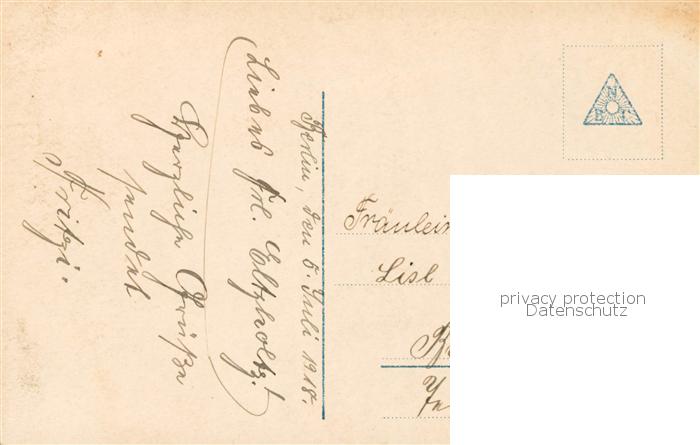 Berlin, den 5. Juli 1918.
Liebes Frl. Eltzholtz!
Herzliche Grüße
sendet
Fritzi.
N
B K
Fräulein
Lisl
privacy protection
Datenschutz